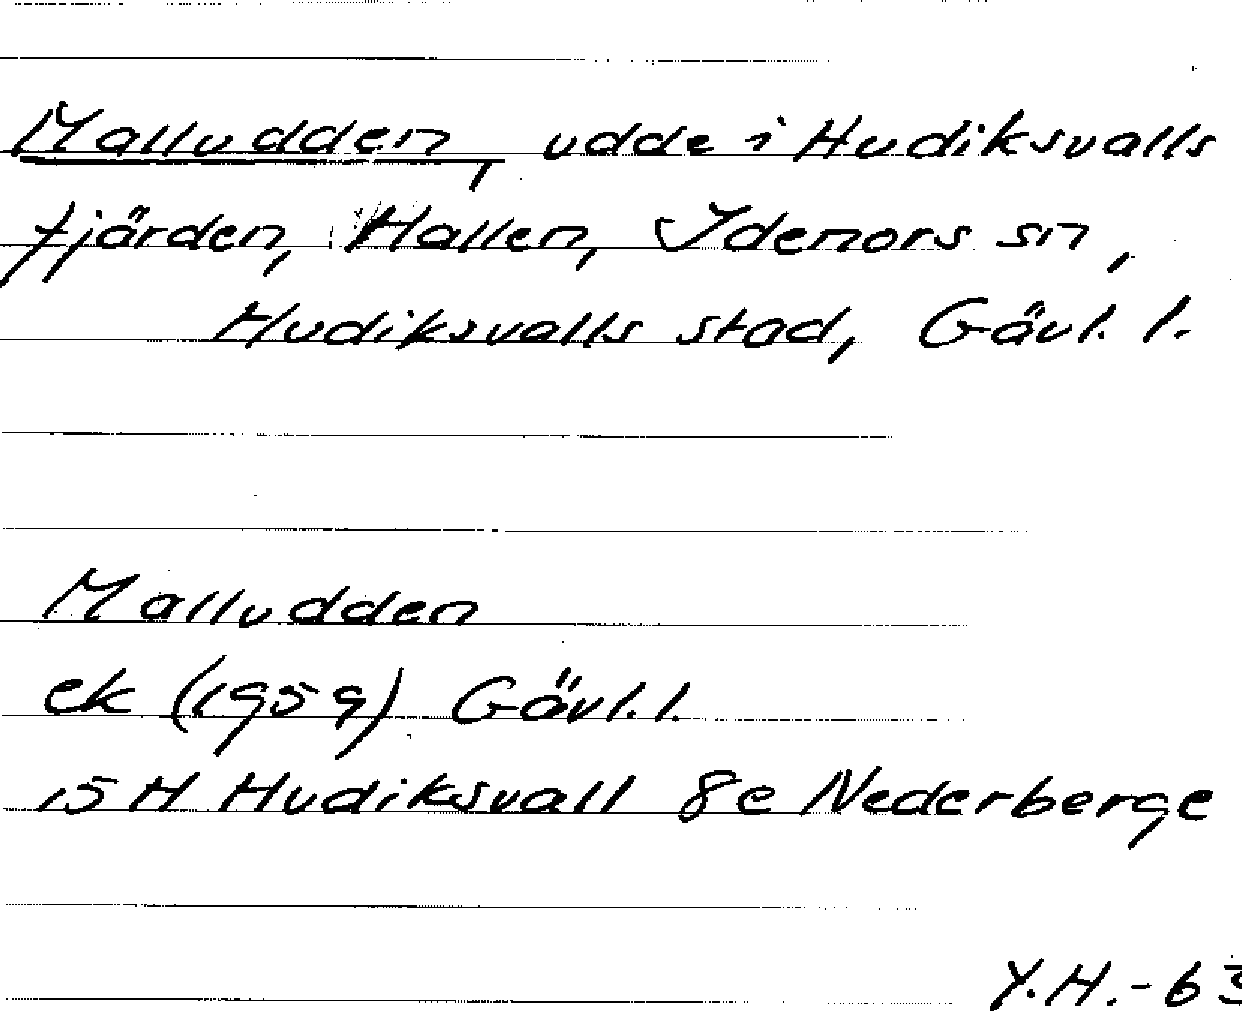 Malludden, udde i Hudiksvalls
fjärden, Hallen, Idenors sn,
Hudiksvalls stad, Gävl. l.
Malludden
ek (1959) Gävl. l.
15 H Hudiksvall 8e Nederberge
Y.H.-63